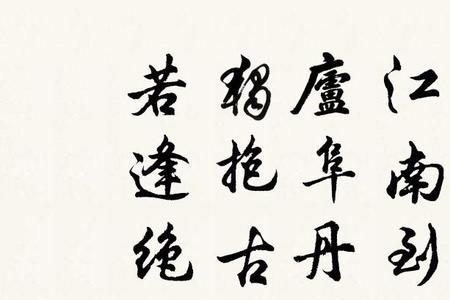 江南到
廬阜丹
獨抱古
若逢絶